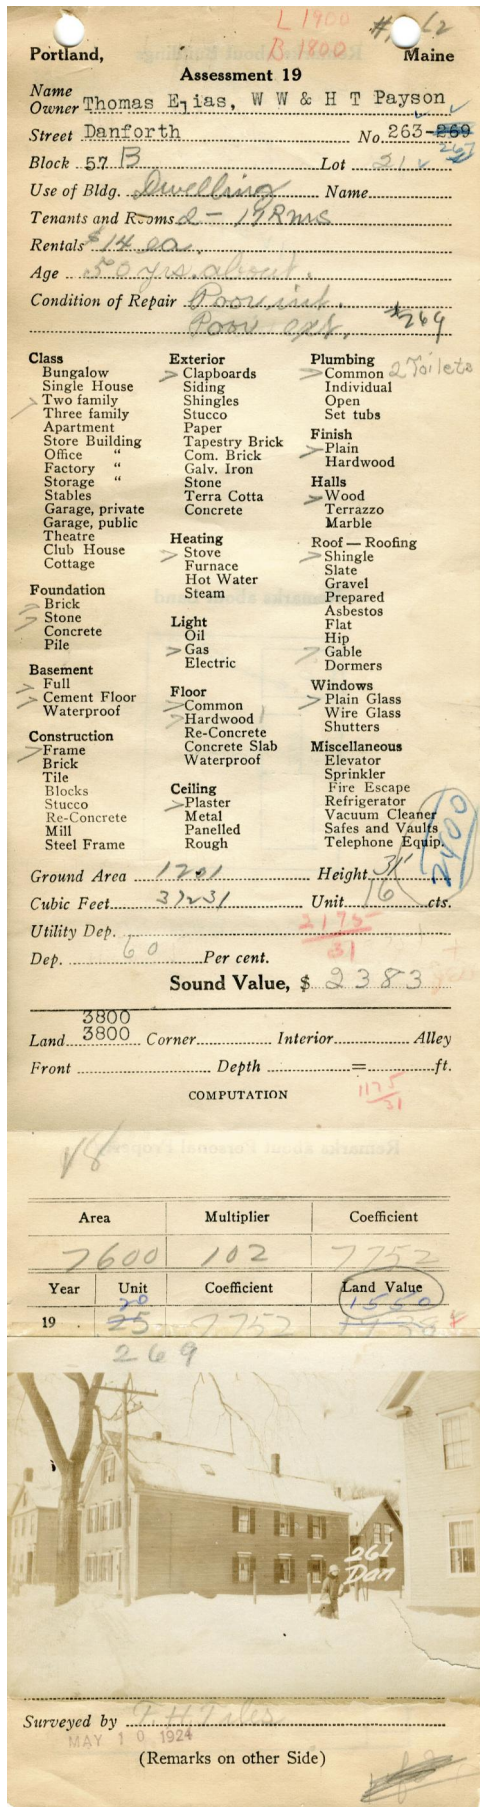 L 1900
B 1800
Portland, Maine
Assessment 19
Name
Owner Thomas Elias, W W & H T Payson
Street Danforth No. 263-269
267
Block 57 B Lot 21
Use of Bldg. Dwelling Name
Tenants and Rooms 2 - 17 Rms
Rentals $14 ea.
Age 50 yrs. about.
Condition of Repair Poor int.
Poor ext. $269
Class
Bungalow
Single House
Two family
Three family
Apartment
Store Building
Office "
Factory "
Storage "
Stables
Garage, private
Garage, public
Theatre
Club House
Cottage
Foundation
Brick
Stone
Concrete
Pile
Basement
Full
Cement Floor
Waterproof
Construction
Frame
Brick
Tile
Blocks
Stucco
Re-Concrete
Mill
Steel Frame
Exterior
Clapboards
Siding
Shingles
Stucco
Paper
Tapestry Brick
Com. Brick
Galv. Iron
Stone
Terra Cotta
Concrete
Heating
Stove
Furnace
Hot Water
Steam
Light
Oil
Gas
Electric
Floor
Common
Hardwood 1
Re-Concrete
Concrete Slab
Waterproof
Ceiling
Plaster
Metal
Panelled
Rough
Plumbing
Common 2 Toilets
Individual
Open
Set tubs
Finish
Plain
Hardwood
Halls
Wood
Terrazzo
Marble
Roof — Roofing
Shingle
Slate
Gravel
Prepared
Asbestos
Flat
Hip
Gable
Dormers
Windows
Plain Glass
Wire Glass
Shutters
Miscellaneous
Elevator
Sprinkler
Fire Escape
Refrigerator
Vacuum Cleaner
Safes and Vaults
Telephone Equip.
2400
Ground Area 1201 Height 31'
Cubic Feet 37231 Unit 16 cts.
Utility Dep. 2175
31
Dep. 60 Per cent.
Sound Value, $ 2383
3800
Land 3800 Corner Interior Alley
Front Depth = ft.
COMPUTATION
1175
31
Area Multiplier Coefficient
7600 102 7752
Year Unit Coefficient Land Value
20 1550
19 25 7752
269
261
Dan
Surveyed by
MAY 10 1924
(Remarks on other Side)